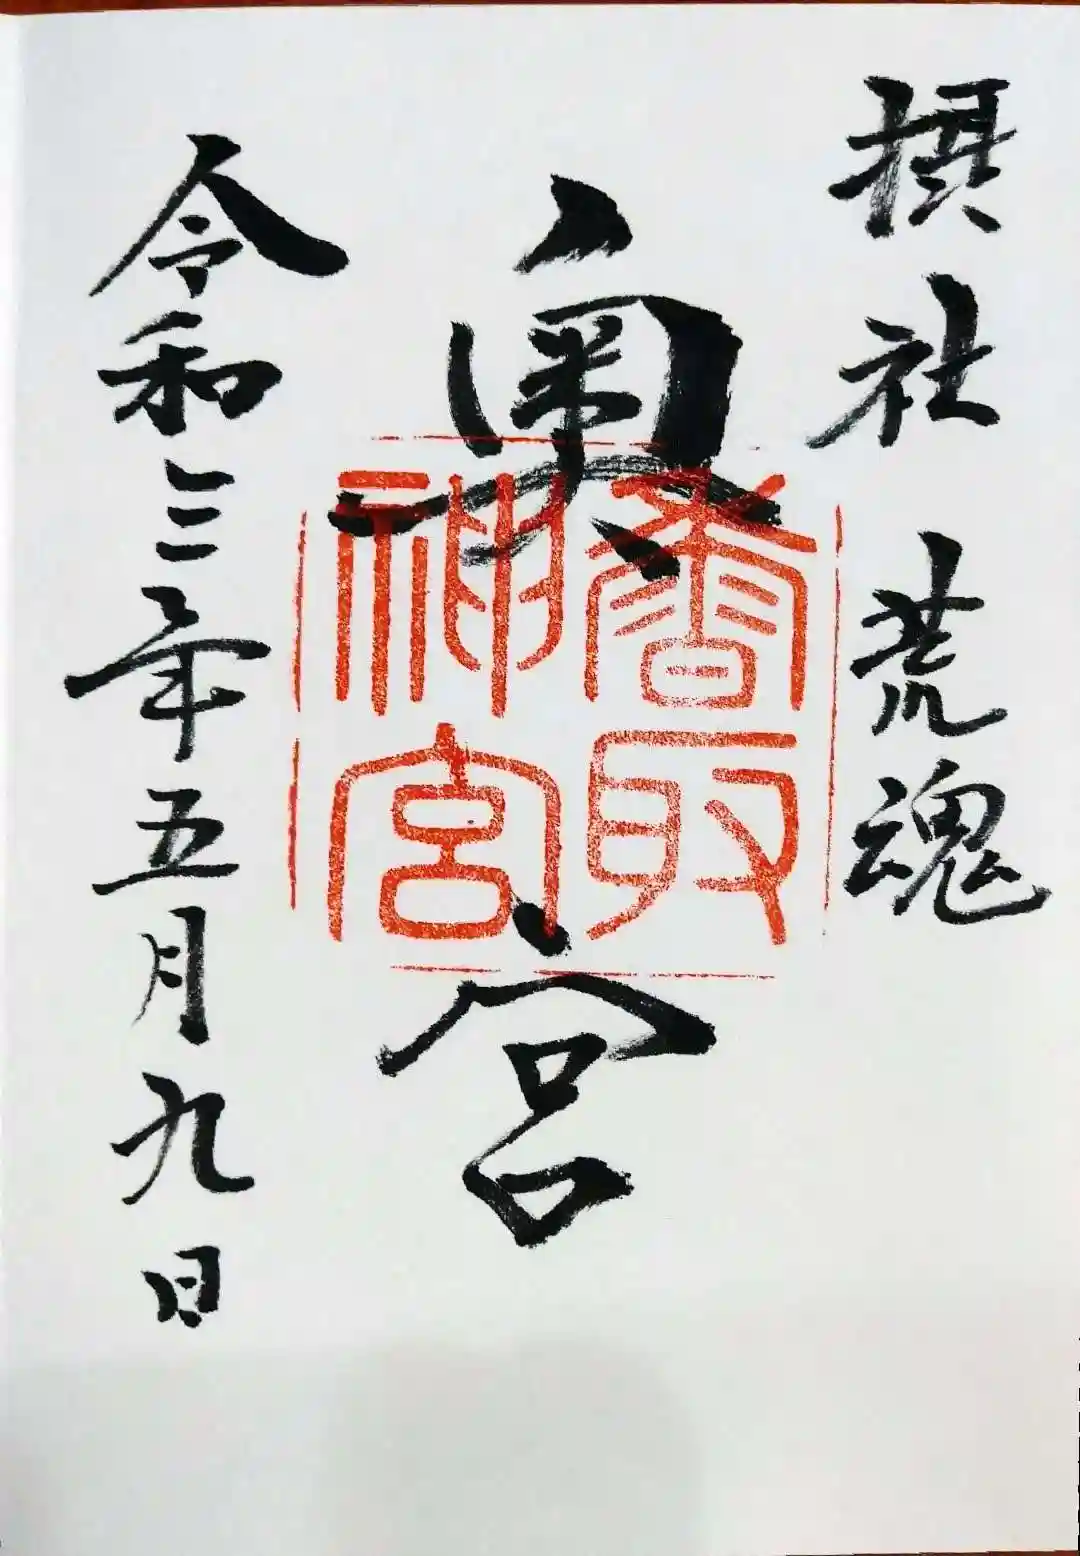 摂社 荒魂
奥宮
香取
神宮
令和三年五月九日